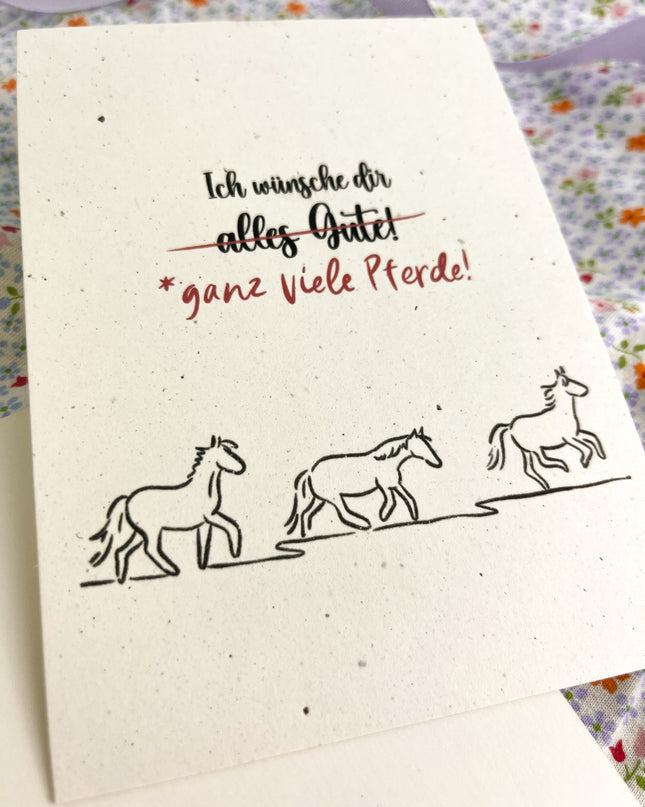 Ich wünsche dir
alles Gute!
*ganz viele Pferde!